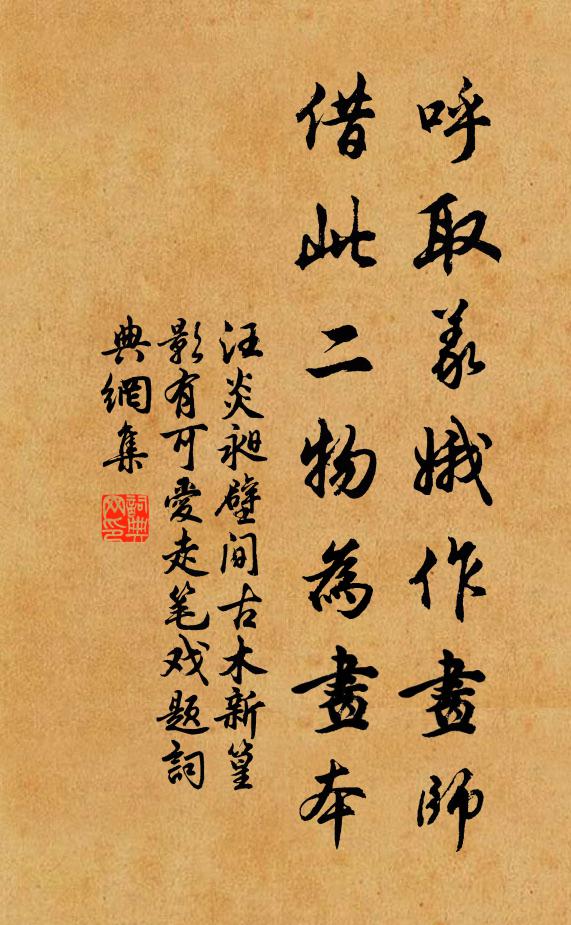 呼取羲娥作畫師
借此二物為畫本
汪炎昶壁间古木新篁
影有可愛走笔戏题詞
典網集
詞典
网印